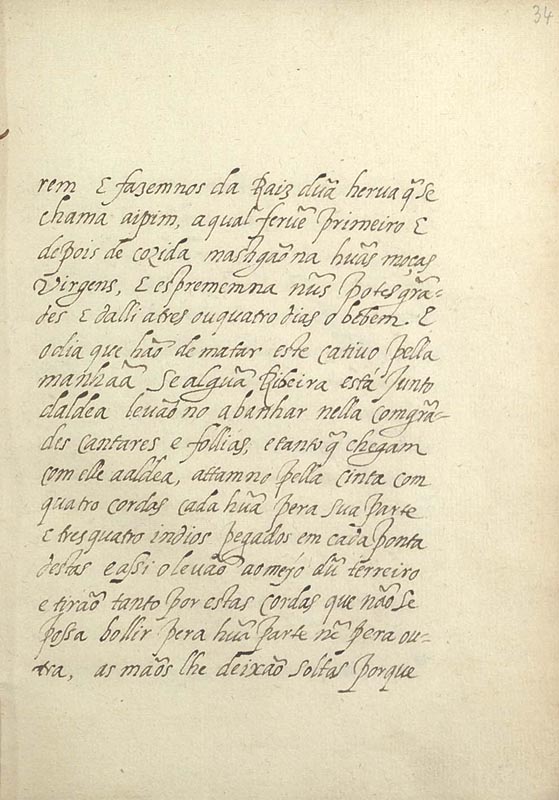 34
rem E fazemnos da Raiz dũa herua q̃ se
chama aipim, a qual feruẽ primeiro E
depois de cozida mastigaõ na hũas moças
Virgens, E esprememna nũs potes grã-
des E dalli a tres ou quatro dias o bebem. E
o dia que haõ de matar este cativo pella
manhaã se algũa Ribeira está junto
daldea levaõ no a banhar nella com grã-
des cantares e follias, e tanto q̃ chegam
com elle aaldea, attamno pella cinta com
quatro cordas cada hũa pera sua parte
E tres quatro indios pegados em cada ponta
destas e assi o levaõ ao meyo dũ terreiro
e tiraõ tanto por estas cordas que não se
possa bollir pera hũa parte nẽ pera ou-
tra, as mãos lhe deixaõ soltas porque